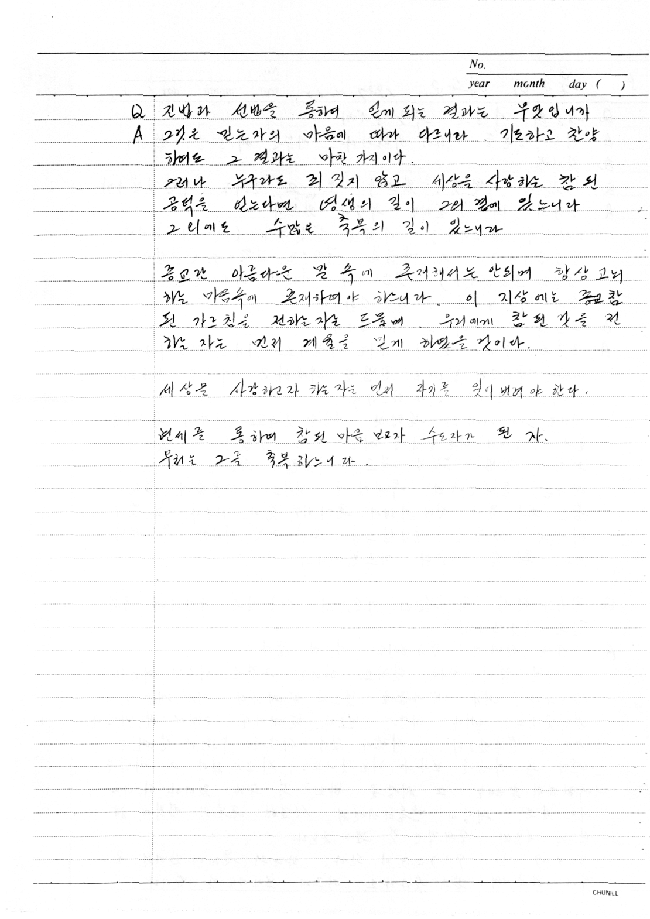 No.
year month day ( )
Q 진법과 선법을 통하여 얻게 되는 결과는 무엇입니까
A 그것은 믿는자의 마음에 따라 다르니라 기도하고 찬양
하여도 그 결과는 마찬가지이다.
그러나 누구라도 죄 짓지 않고 세상을 사랑하는 참 된
공덕을 얻는다면 영생의 길이 그의 곁에 있느니라
그 외에도 수많은 축복의 길이 있느니라
종교란 아름다운 말 속에 존재해서는 안되며 항상 고뇌
하는 마음속에 존재하여야 하느니라. 이 지상에는 종교 참
된 가르침을 전하는자는 드물며 우리에게 참된 것을 전
하는 자는 먼저 깨우침을 얻게 하였을 것이다.
세상을 사랑하고자 하는 자는 먼저 자기를 잊어 버려야 한다.
현세를 통하여 참된 마음 수도자가 된 자.
우리는 그를 축복하느니라.
CHUNIL